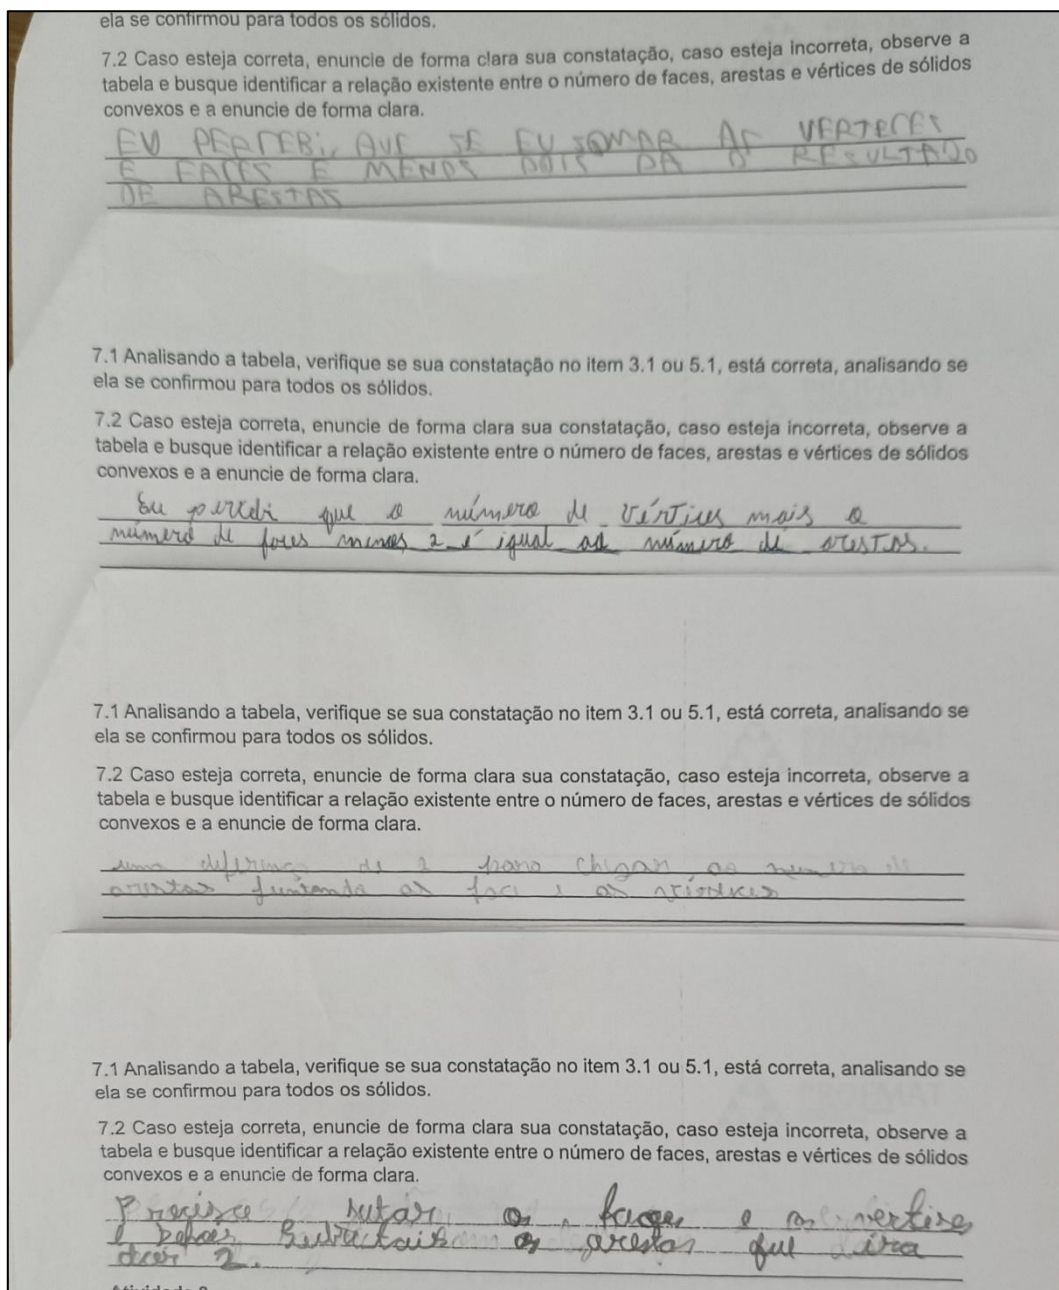 ela se confirmou para todos os sólidos.
7.2 Caso esteja correta, enuncie de forma clara sua constatação, caso esteja incorreta, observe a
tabela e busque identificar a relação existente entre o número de faces, arestas e vértices de sólidos
convexos e a enuncie de forma clara.
EU PERCEBI, QUE SE EU SOMAR AS VERTECES
E FACES E MENOS DOIS DA O RESULTADO
DE ARESTAS
7.1 Analisando a tabela, verifique se sua constatação no item 3.1 ou 5.1, está correta, analisando se
ela se confirmou para todos os sólidos.
7.2 Caso esteja correta, enuncie de forma clara sua constatação, caso esteja incorreta, observe a
tabela e busque identificar a relação existente entre o número de faces, arestas e vértices de sólidos
convexos e a enuncie de forma clara.
Eu percebi que o número de vértices mais o
número de faces menos 2 é igual ao número de arestas.
7.1 Analisando a tabela, verifique se sua constatação no item 3.1 ou 5.1, está correta, analisando se
ela se confirmou para todos os sólidos.
7.2 Caso esteja correta, enuncie de forma clara sua constatação, caso esteja incorreta, observe a
tabela e busque identificar a relação existente entre o número de faces, arestas e vértices de sólidos
convexos e a enuncie de forma clara.
uma diferença de 2 para chegar ao numero de
arestas juntando as face e as
7.1 Analisando a tabela, verifique se sua constatação no item 3.1 ou 5.1, está correta, analisando se
ela se confirmou para todos os sólidos.
7.2 Caso esteja correta, enuncie de forma clara sua constatação, caso esteja incorreta, observe a
tabela e busque identificar a relação existente entre o número de faces, arestas e vértices de sólidos
convexos e a enuncie de forma clara.
Precisa as faces e as vertise
e depois as arestas que ira
dar 2.